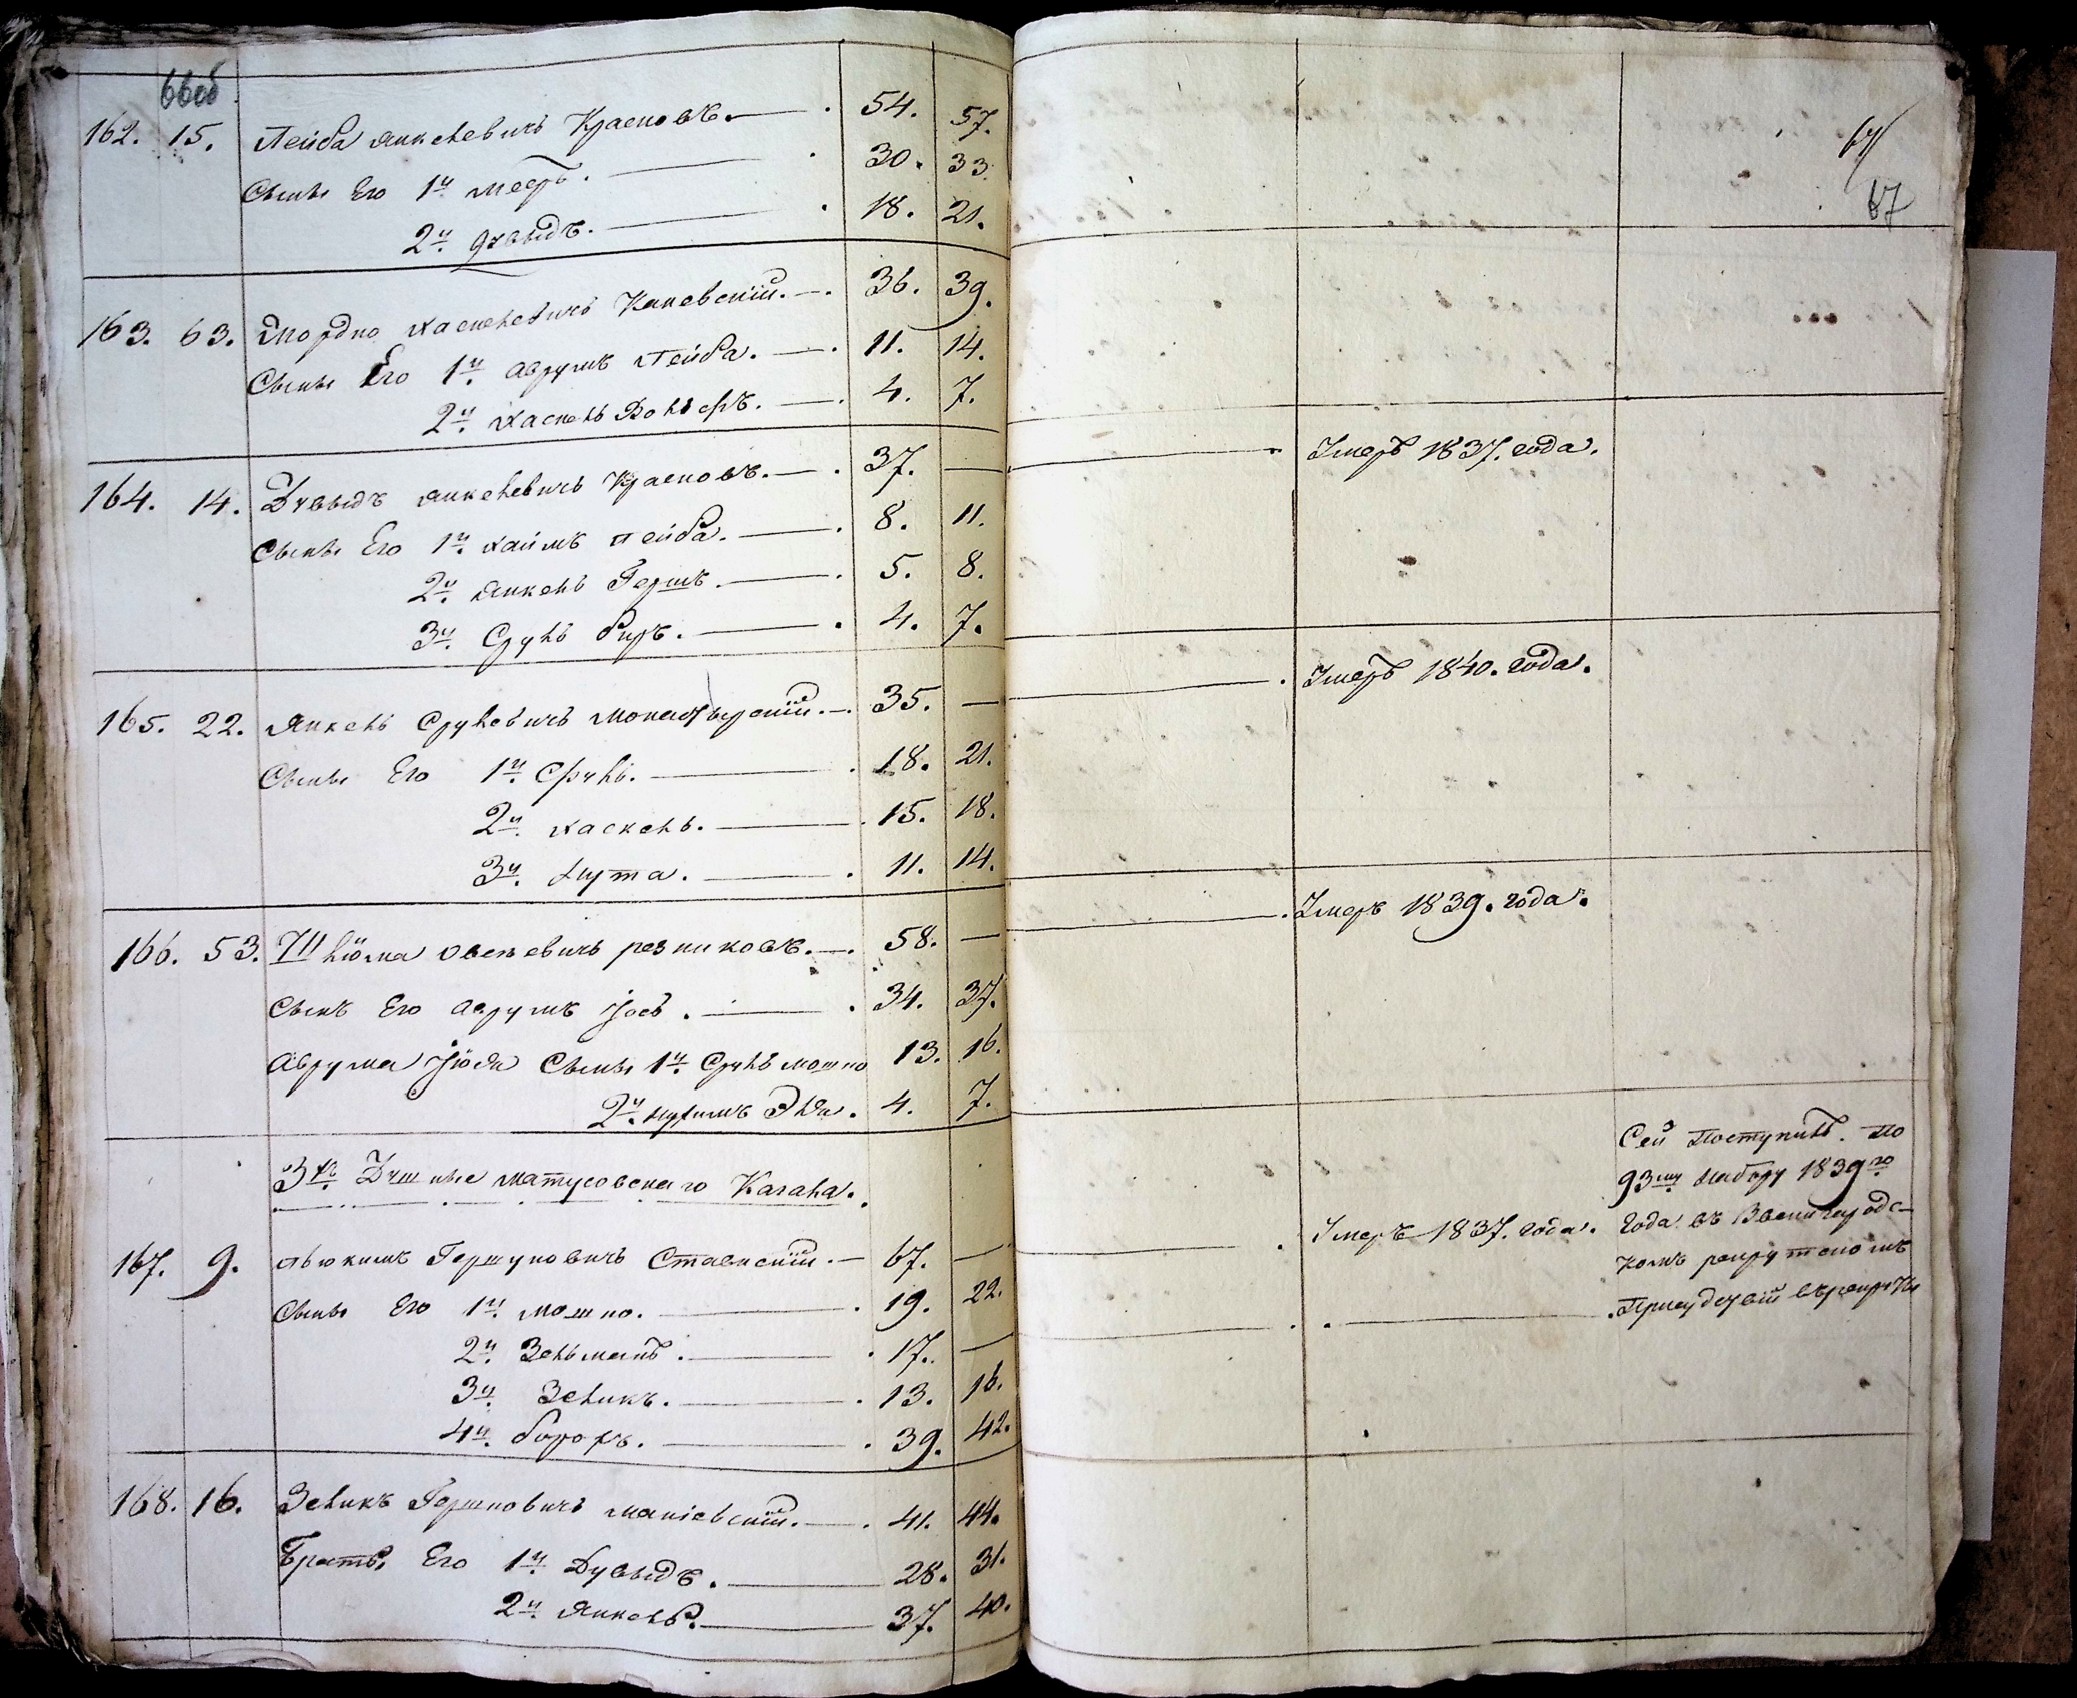 66об
162. 15. Лейба Янкелевичъ Красновъ. 54. 57.
Сыны Его 1й Мееръ. 30. 33.
2й Дувыдъ. 18. 21.
163. 63. Мордко Хаскелевичъ Каневскій. 36. 39.
Сыны Его 1й Аврумъ Лейба. 11. 14.
2й Хаскель Вольфъ. 4. 7.
164. 14. Дувыдъ Янкелевичъ Красновъ. 37. —
Сыны Его 1й Хаимъ Лейба. 8. 11.
2й Янкель Гершъ. 5. 8.
3й Сруль Беръ. 4. 7.
165. 22. Янкель Срулевичъ Монастырскій. 35. —
Сыны Его 1й Сруль. 18. 21.
2й Хаскель. 15. 18.
3й Нута. 11. 14.
166. 53. Шлюома Овсеевичъ Резниковъ. 58. —
Сынъ Его Аврумъ Іосъ. 34. 37.
Аврума Іося Сыны 1й Сруль Мошко 13. 16.
2й Нухимъ Эля. 4. 7.
3е Душные Матусовскаго Кагала.
167. 9. Гершуновичъ Ставискій. 67. —
Сыны Его 1й Мошко. 19. 22.
2й Зельманъ. 17. —
3й Зеликъ. 13. 16.
4й Борохъ. 39. 42.
168. 16. Зеликъ Гершковичъ Маніевскій. 41. 44.
Братья Его 1й Дувыдъ. 28. 31.
2й Янкель. 37. 40.
67
67
Умеръ 1837. года.
Умеръ 1840. года.
Умеръ 1839. года.
Умеръ 1837. года.
Сей Поступилъ По
93му Набору 1839го
Года въ Звенигородс-
комъ рекрутскомъ
Присудствіи въ рекруты